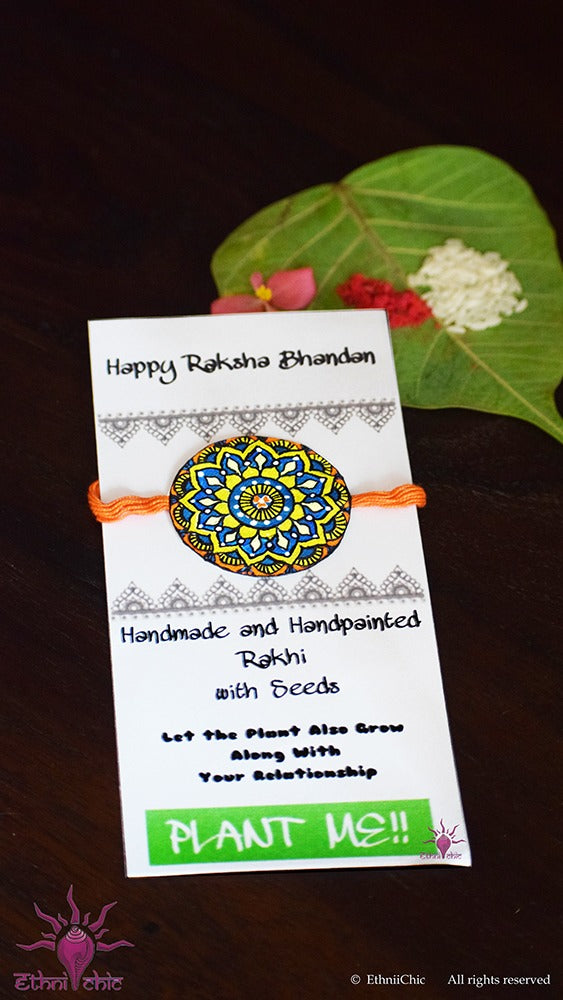 Happy Raksha Bhandan
Handmade and Handpainted
Rakhi
with Seeds
Let the Plant Also Grow
Along With
Your Relationship
PLANT ME!!
Ethnii chic
Ethnii chic
© EthniiChic All rights reserved